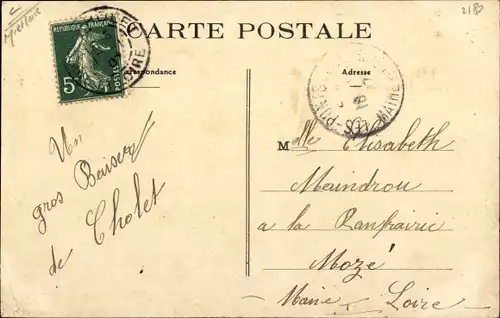 2183
CARTE POSTALE
RÉPUBLIQUE FRANÇAISE
5
POSTES
LOIRE
Correspondance
Adresse
PONTS
MAINE
Un
gros Baiser
de Cholet
Mlle Elisabeth
Maindrou
a la Ranfrairie
Mozé
Maine Loire